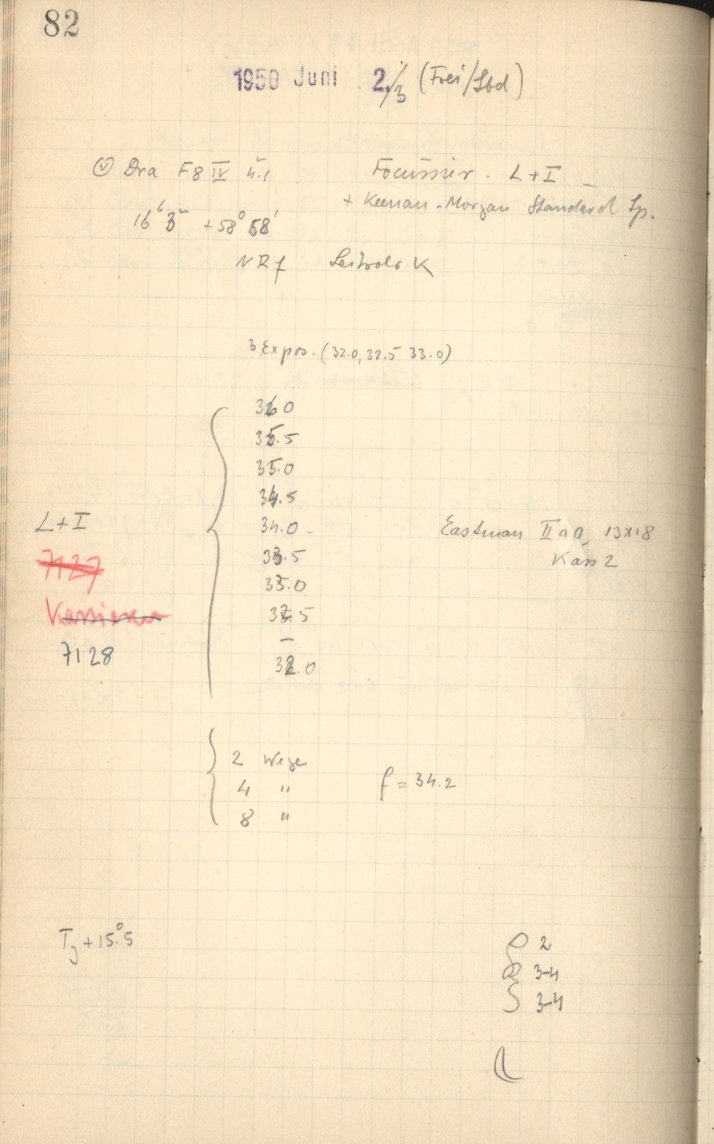 82
1950 Juni 2./3 (Frei/Sbd)
Dra F8 IV 4.1 Focussier. L+I
+ Keenan-Morgan Standard Sp.
16ʰ 3ᵐ +58° 58'
NRf K
3 Expos. (32.0, 32.5 33.0)
36.0
35.5
35.0
34.5
34.0
33.5
33.0
32.5
32.0
L+I
7127
7128
Eastman IIa0, 13x18
Kass 2
2 Wege
4 "
8 "
f = 34.2
+15°.5
2
3-4
3-4